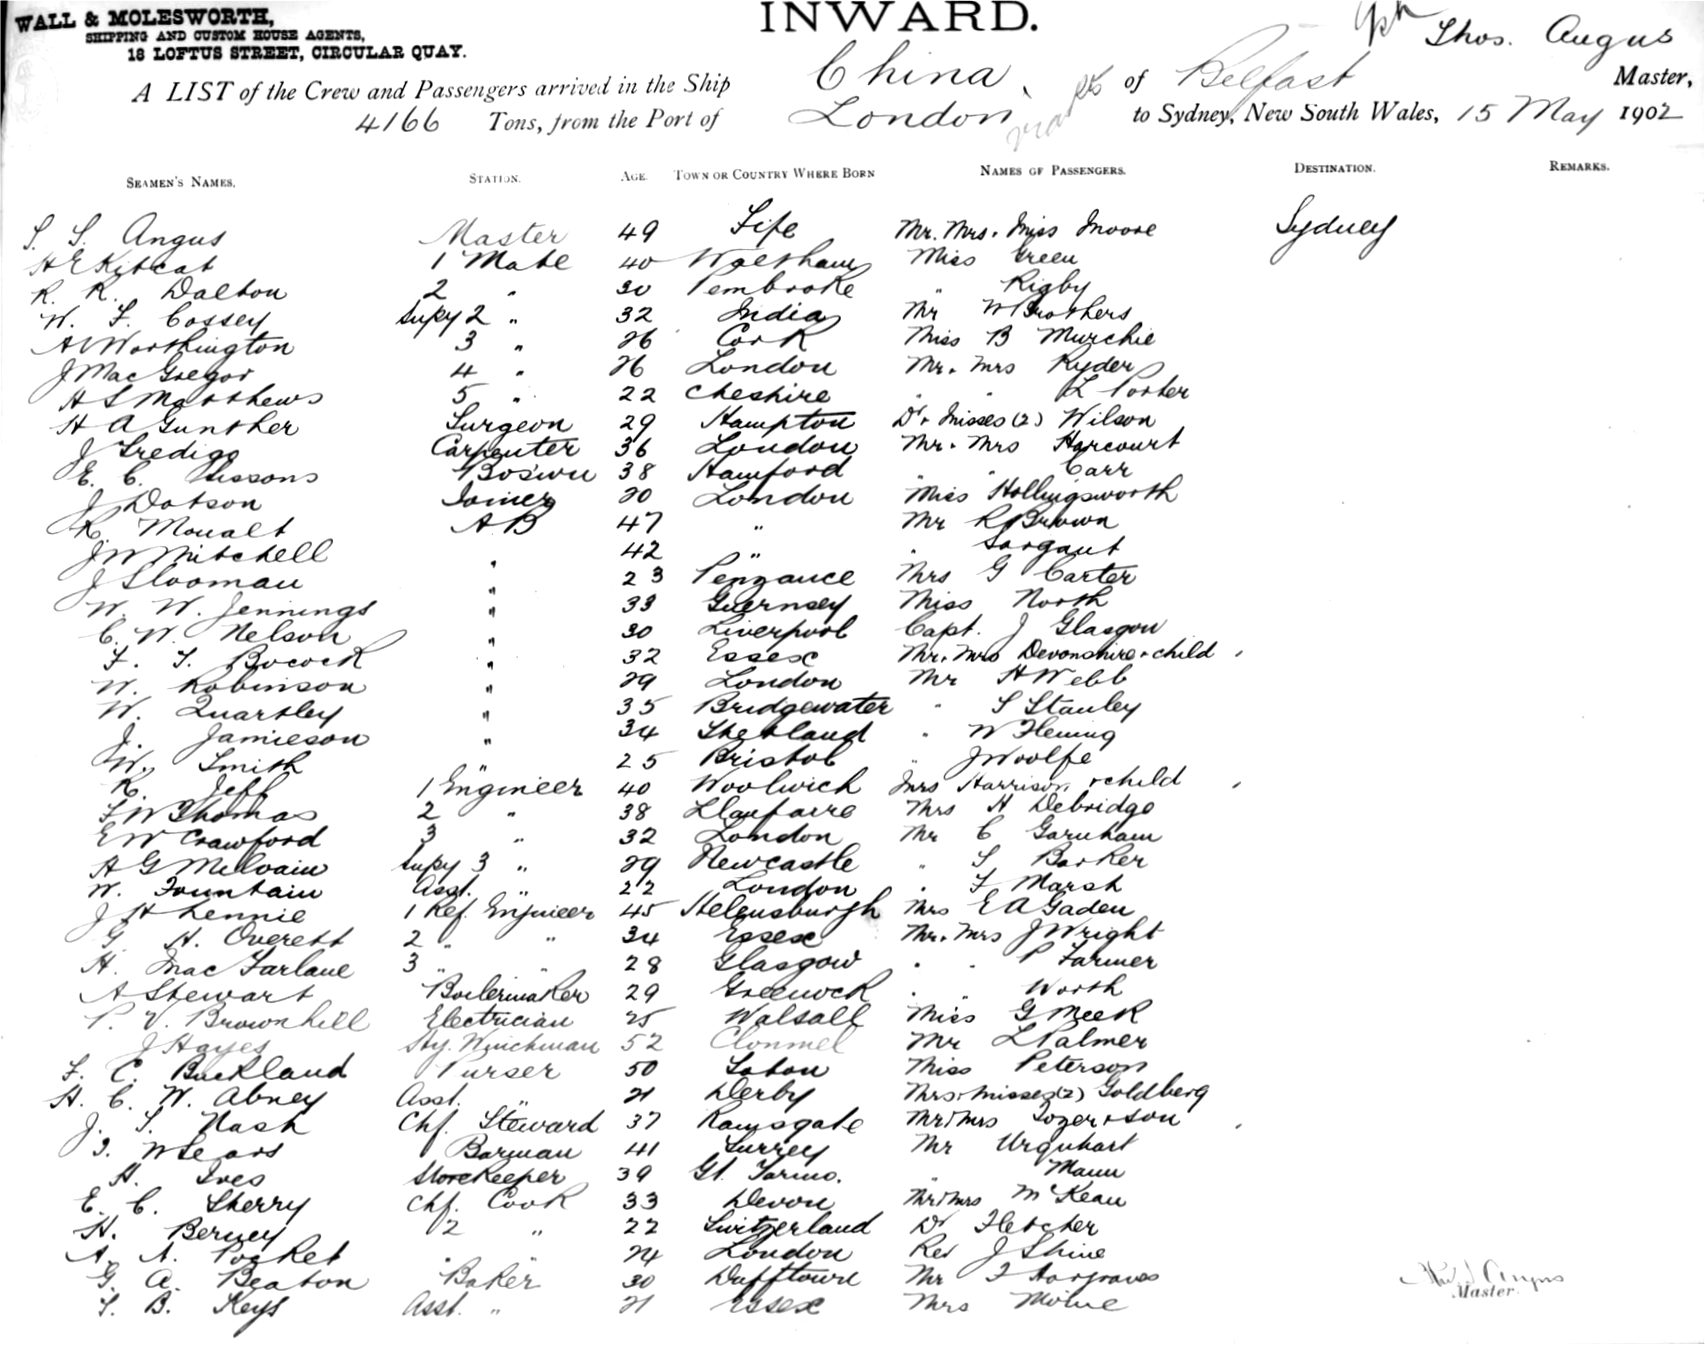 WALL & MOLESWORTH,
SHIPPING AND CUSTOM HOUSE AGENTS,
18 LOFTUS STREET, CIRCULAR QUAY.
INWARD.
Thos. Angus
A LIST of the Crew and Passengers arrived in the Ship China of Belfast Master,
4166 Tons, from the Port of London to Sydney, New South Wales, 15 May 1902
SEAMEN'S NAMES. STATION. AGE. TOWN OR COUNTRY WHERE BORN NAMES OF PASSENGERS. DESTINATION. REMARKS.
Angus Master 49 Fife Mr. Mrs. Miss Moore Sydney
H E Kitcat 1 Mate 40 Waltham Miss Green
R. R. Dalton 2 " 30 Pembroke " Rigby
W. F. Cossey Supy 2 " 32 India Mr W Brothers
A Worthington 3 " 26 Cork Miss B Murchie
J MacGregor 4 " 26 London Mr. Mrs Ryder
H S Matthews 5 " 22 Cheshire " " L Porter
H A Gunther Surgeon 29 Hampton Dr. Misses (2) Wilson
J Carpenter 36 London Mr. Mrs Harcourt
E. C. Sissons Bos'wn 38 " " Carr
J Dotson Joiner 20 London Miss Hollingsworth
R. Moualt A B 47 " Mr R Brown
J W Mitchell " 42 " " Sargant
J Slooman " 23 Penzance Mrs G Carter
W. W. Jennings " 33 Guernsey Miss North
C. W. Nelson " 30 Liverpool Capt. J Glasgow
F. T. Bocock " 32 Essex Mr. Mrs Devonshire + child
W. Robinson " 29 London Mr H Webb
W. Quartley " 35 Bridgewater " S Stanley
J. Jamieson " 34 Shetland " W Fleming
W. Smith " 25 Bristol " J Woolfe
R. Jeff 1 Engineer 40 Woolwich Mrs Harrison + child
F W Thomas 2 " 38 Llanfaire Mrs H Debridge
E W Crawford 3 " 32 London Mr C Garnham
A G Milvain Supy 3 " 29 Newcastle " S Barker
W. Fountain Asst. " 22 London " F Marsh
J H Lennie 1 Ref. Engineer 45 Helensburgh Mrs E A Gaden
G. H. Overett 2 " " 34 Essex Mr. Mrs J Wright
H. MacFarlane 3 " " 28 Glasgow " " P Farmer
A Stewart Boilermaker 29 Greenock " " Worth
P. V. Brownhill Electrician 25 Walsall Miss G Meek
J Hayes Winchman 52 Clonmel Mr L Palmer
F. C. Buckland Purser 50 Miss Peterson
H. C. W. Abney Asst. " 21 Derby Mrs. Misses (2) Goldberg
J. T. Nash Chf. Steward 37 Ramsgate Mr Mrs Tozer + son
W Sears Barman 41 Surrey Mr Urquhart
H. Ives Storekeeper 39 Gt. " Mann
E. C. Sherry Chf. Cook 33 Devon Mr Mrs McKean
H. Berney 2 " 22 Switzerland Dr Fletcher
A. A. Pocket " " 24 London Rev J Shine
G. A. Beaton Baker 30 Dufftown Mr F Hargraves
B. Keys Asst. " 21 Essex Mrs Milne
Angus
Master.